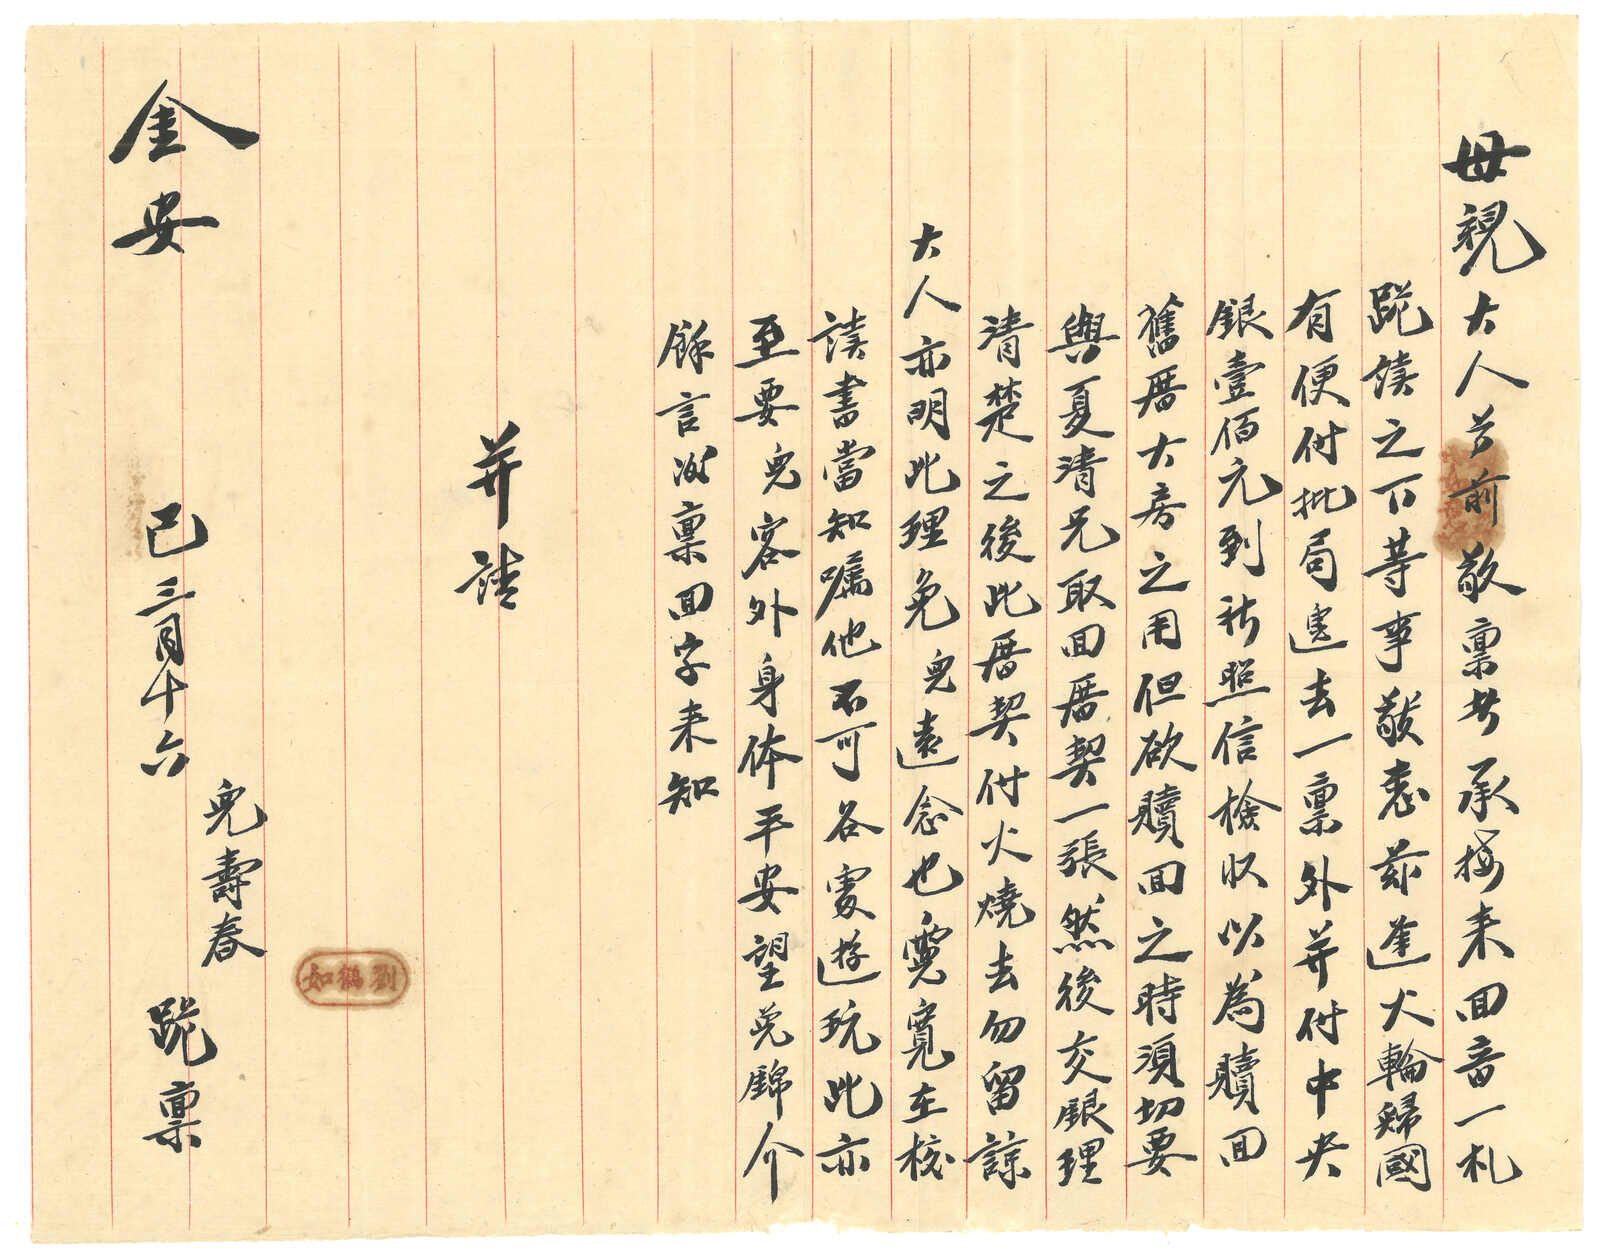 母親大人兮前敬稟者承接来回音一札
跪讀之下等事敬悉茲逢火輪歸國
有便付批局邊去一稟外并付中央
銀壹佰元到祈照信檢收以為贖回
舊厝大房之用但欲贖回之時須切要
與夏清兄取回厝契一張然後交銀理
清楚之後此厝契付火燒去勿留諒
大人亦明此理免兒遠念也霓寬在校
讀書當知嘱他不可各處遊玩此亦
至要兒客外身体平安望免錦介
餘言後稟回字来知
并請
金安
兒壽春
跪稟
己三月十六
劉鶴如